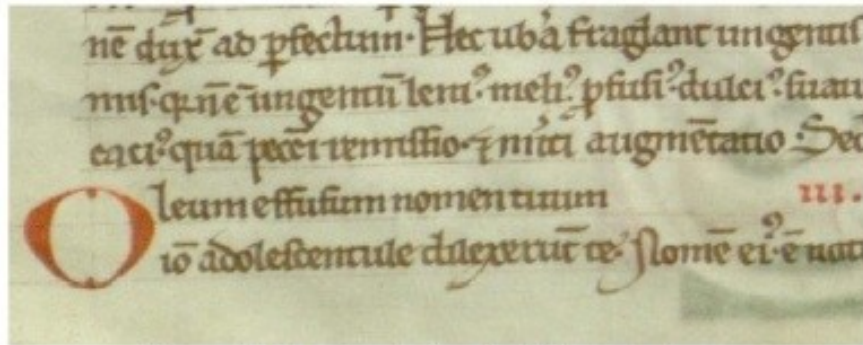 nē dux̄ ad ꝑfectum. Hec ubˀa fraglant ungentis
mis. qꝛ nē ungentū leniˀ. meliˀ ꝑfusiˀ. dulciˀ. suau
quā pecc̄i remissio. ⁊ augmētatio. Sed
Oleum effusum nomen tuum III.
iō adolescentule dilexerūt te. Nomē eiˀ. ē